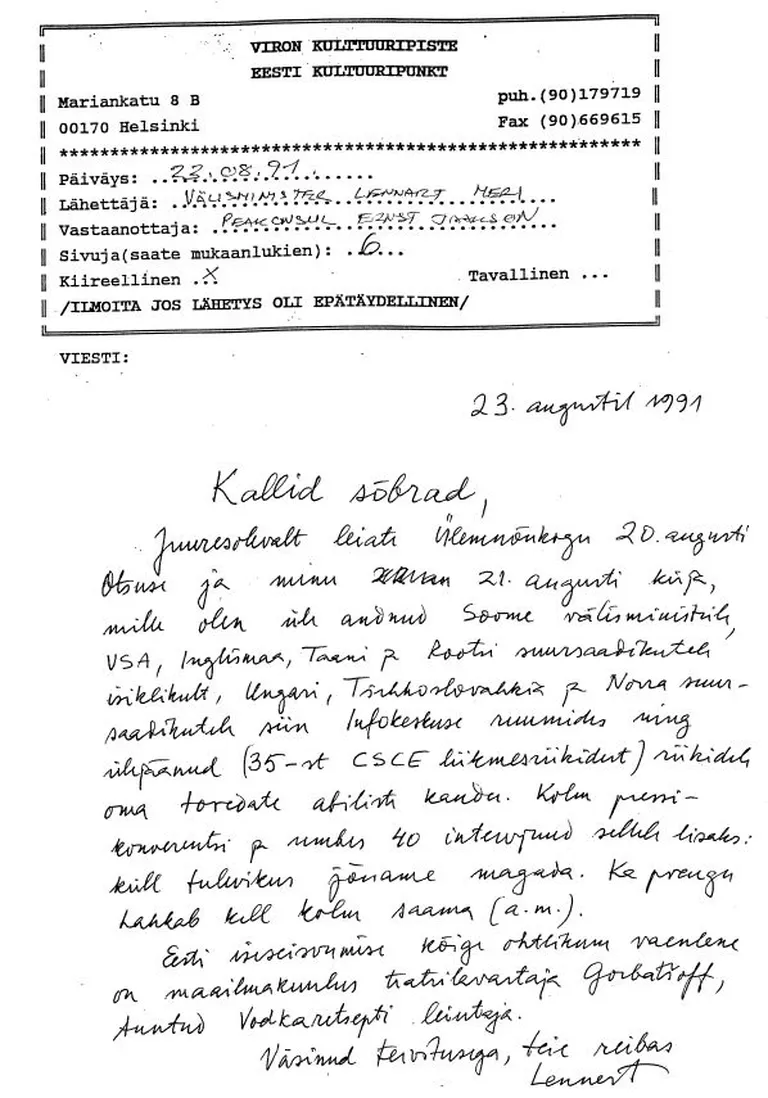 VIRON KULTTUURIPISTE
EESTI KULTUURIPUNKT
Mariankatu 8 B puh.(90)179719
00170 Helsinki Fax (90)669615
************************************************************
Päiväys: ..23.08.91.......
Lähettäjä: .VÄLISMINISTER LENNART MERI...
Vastaanottaja: .PEAKONSUL ERNST JAAKSON..
Sivuja(saate mukaanlukien): ..6...
Kiireellinen ..X Tavallinen ...
/ILMOITA JOS LÄHETYS OLI EPÄTÄYDELLINEN/
VIESTI:
23. augustil 1991
Kallid sõbrad,
Juuresolevalt leiate Ülemnõukogu 20. augusti
Otsuse ja minu 21. augusti kirja,
mille olen üle andnud Soome välisministrile,
USA, Inglismaa, Taani ja Rootsi suursaadikutele
isiklikult, Ungari, Tšehhoslovakkia ja Norra suur-
saadikutele siin Infokeskuse ruumides ning
ülejäänud (35-st CSCE liikmesriikidest) riikidele
oma toredate abiliste kaudu. Kolm pressi-
konverentsi ja umbes 40 intervjuud sellele lisaks:
küll tulevikus jõuame magada. Ka praegu
hakkab kell kolm saama (a.m.).
Eesti iseseisvumise kõige ohtlikum vaenlene
on maailmakuulus teatrilavastaja Gorbatšoff,
tuntud Vodkaretsepti leiutaja.
Väsinud tervitusega, teie reibas
Lennart